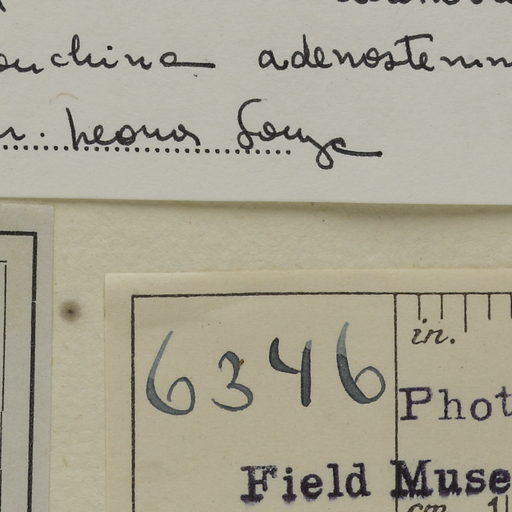 ouchina adenostemm
Souza
6346
in.
Phot
Field Muse
cm. 1